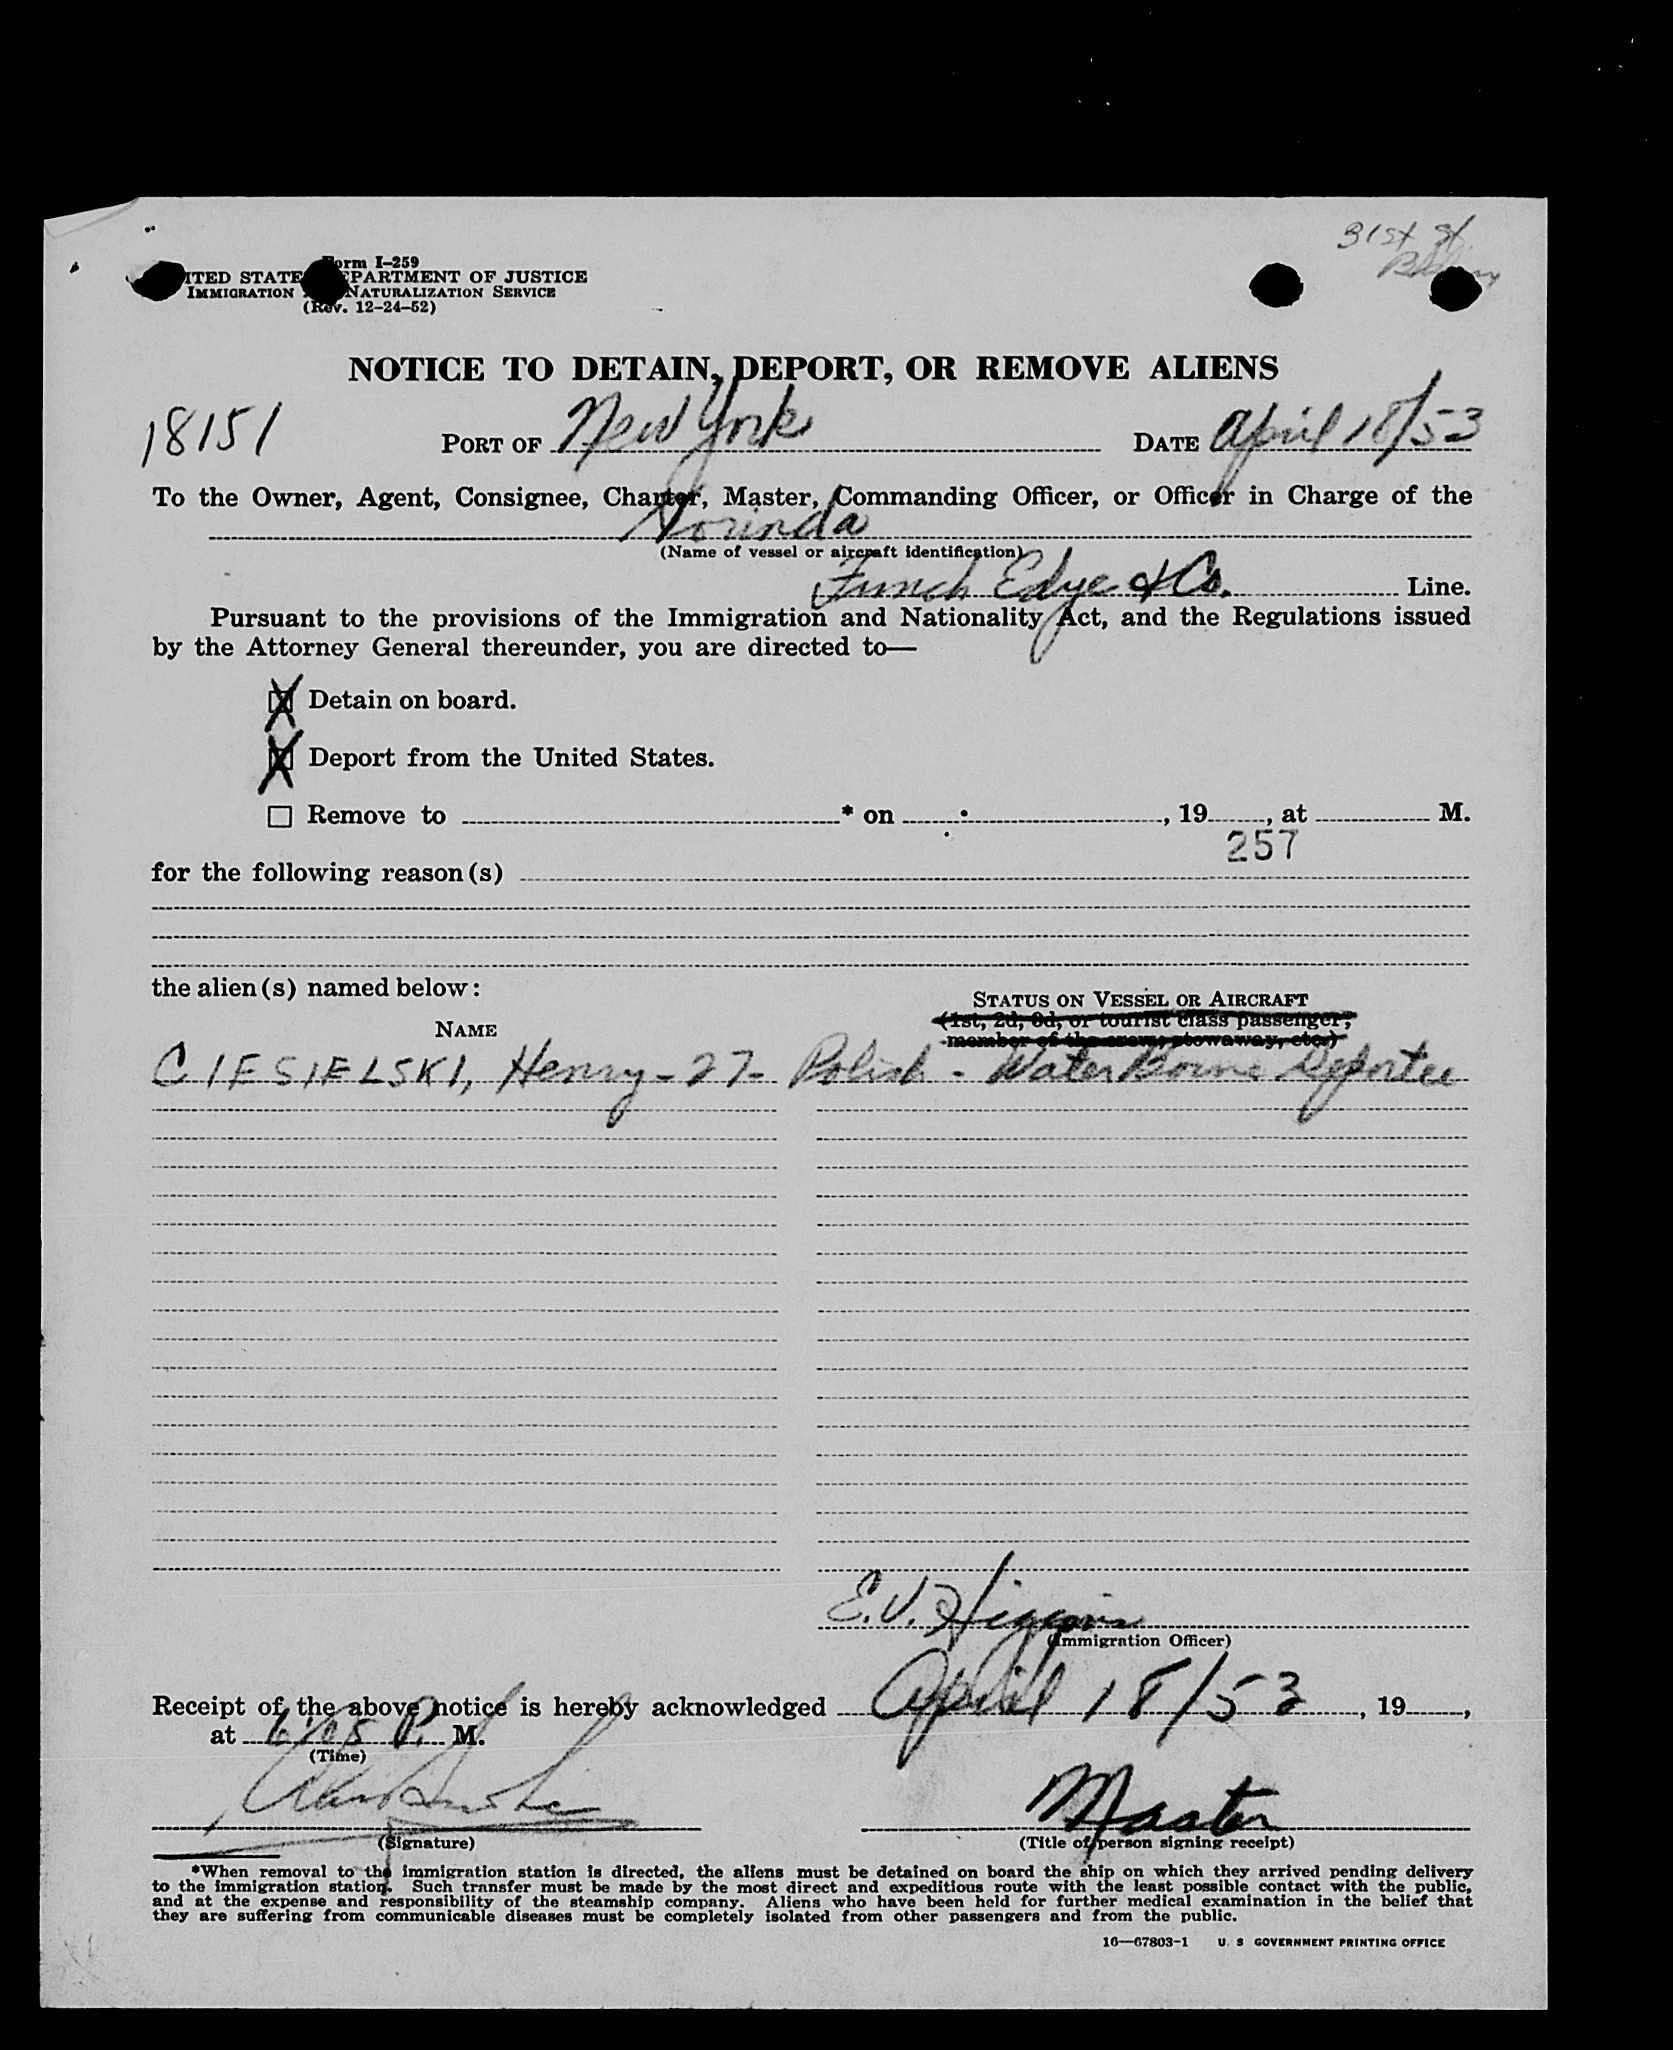 31st St.
Form I-259
UNITED STATES DEPARTMENT OF JUSTICE
IMMIGRATION AND NATURALIZATION SERVICE
(Rev. 12-24-52)
NOTICE TO DETAIN, DEPORT, OR REMOVE ALIENS
18151 PORT OF New York DATE April 18/53
To the Owner, Agent, Consignee, Charter, Master, Commanding Officer, or Officer in Charge of the
(Name of vessel or aircraft identification)
Funch Edye & Co. Line.
Pursuant to the provisions of the Immigration and Nationality Act, and the Regulations issued
by the Attorney General thereunder, you are directed to—
X Detain on board.
X Deport from the United States.
☐ Remove to * on , 19 , at M.
257
for the following reason(s)
the alien(s) named below:
STATUS ON VESSEL OR AIRCRAFT
NAME (1st, 2d, 3d, or tourist class passenger,
member of the crew, stowaway, etc.)
CIESIELSKI, Henry - 27 - Polish - Water Borne Deportee
E.V. Higgins
(Immigration Officer)
Receipt of the above notice is hereby acknowledged April 18/53, 19 ,
at 6:05 P. M.
(Time)
Master
(Signature) (Title of person signing receipt)
*When removal to the immigration station is directed, the aliens must be detained on board the ship on which they arrived pending delivery
to the immigration station. Such transfer must be made by the most direct and expeditious route with the least possible contact with the public,
and at the expense and responsibility of the steamship company. Aliens who have been held for further medical examination in the belief that
they are suffering from communicable diseases must be completely isolated from other passengers and from the public.
16—67803-1 U. S GOVERNMENT PRINTING OFFICE